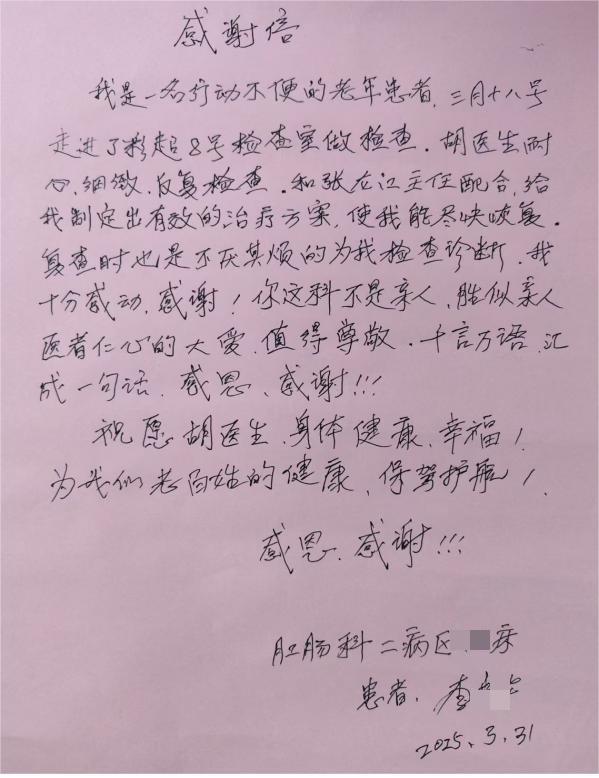 感谢信
我是一名行动不便的老年患者,三月十八号
走进了彩超8号检查室做检查.胡医生耐
心,细致,反复检查.和张左江主任配合,给
我制定出有效的治疗方案,使我能尽快恢复.
复查时也是不厌其烦的为我检查诊断,我
十分感动,感谢!你这种不是亲人,胜似亲人
医者仁心的大爱,值得尊敬.千言万语,汇
成一句话,感恩、感谢!!!
祝愿胡医生,身体健康,幸福!
为我们老百姓的健康,保驾护航!
感恩、感谢!!!
肛肠科二病区,床
患者,李
2025.3.31